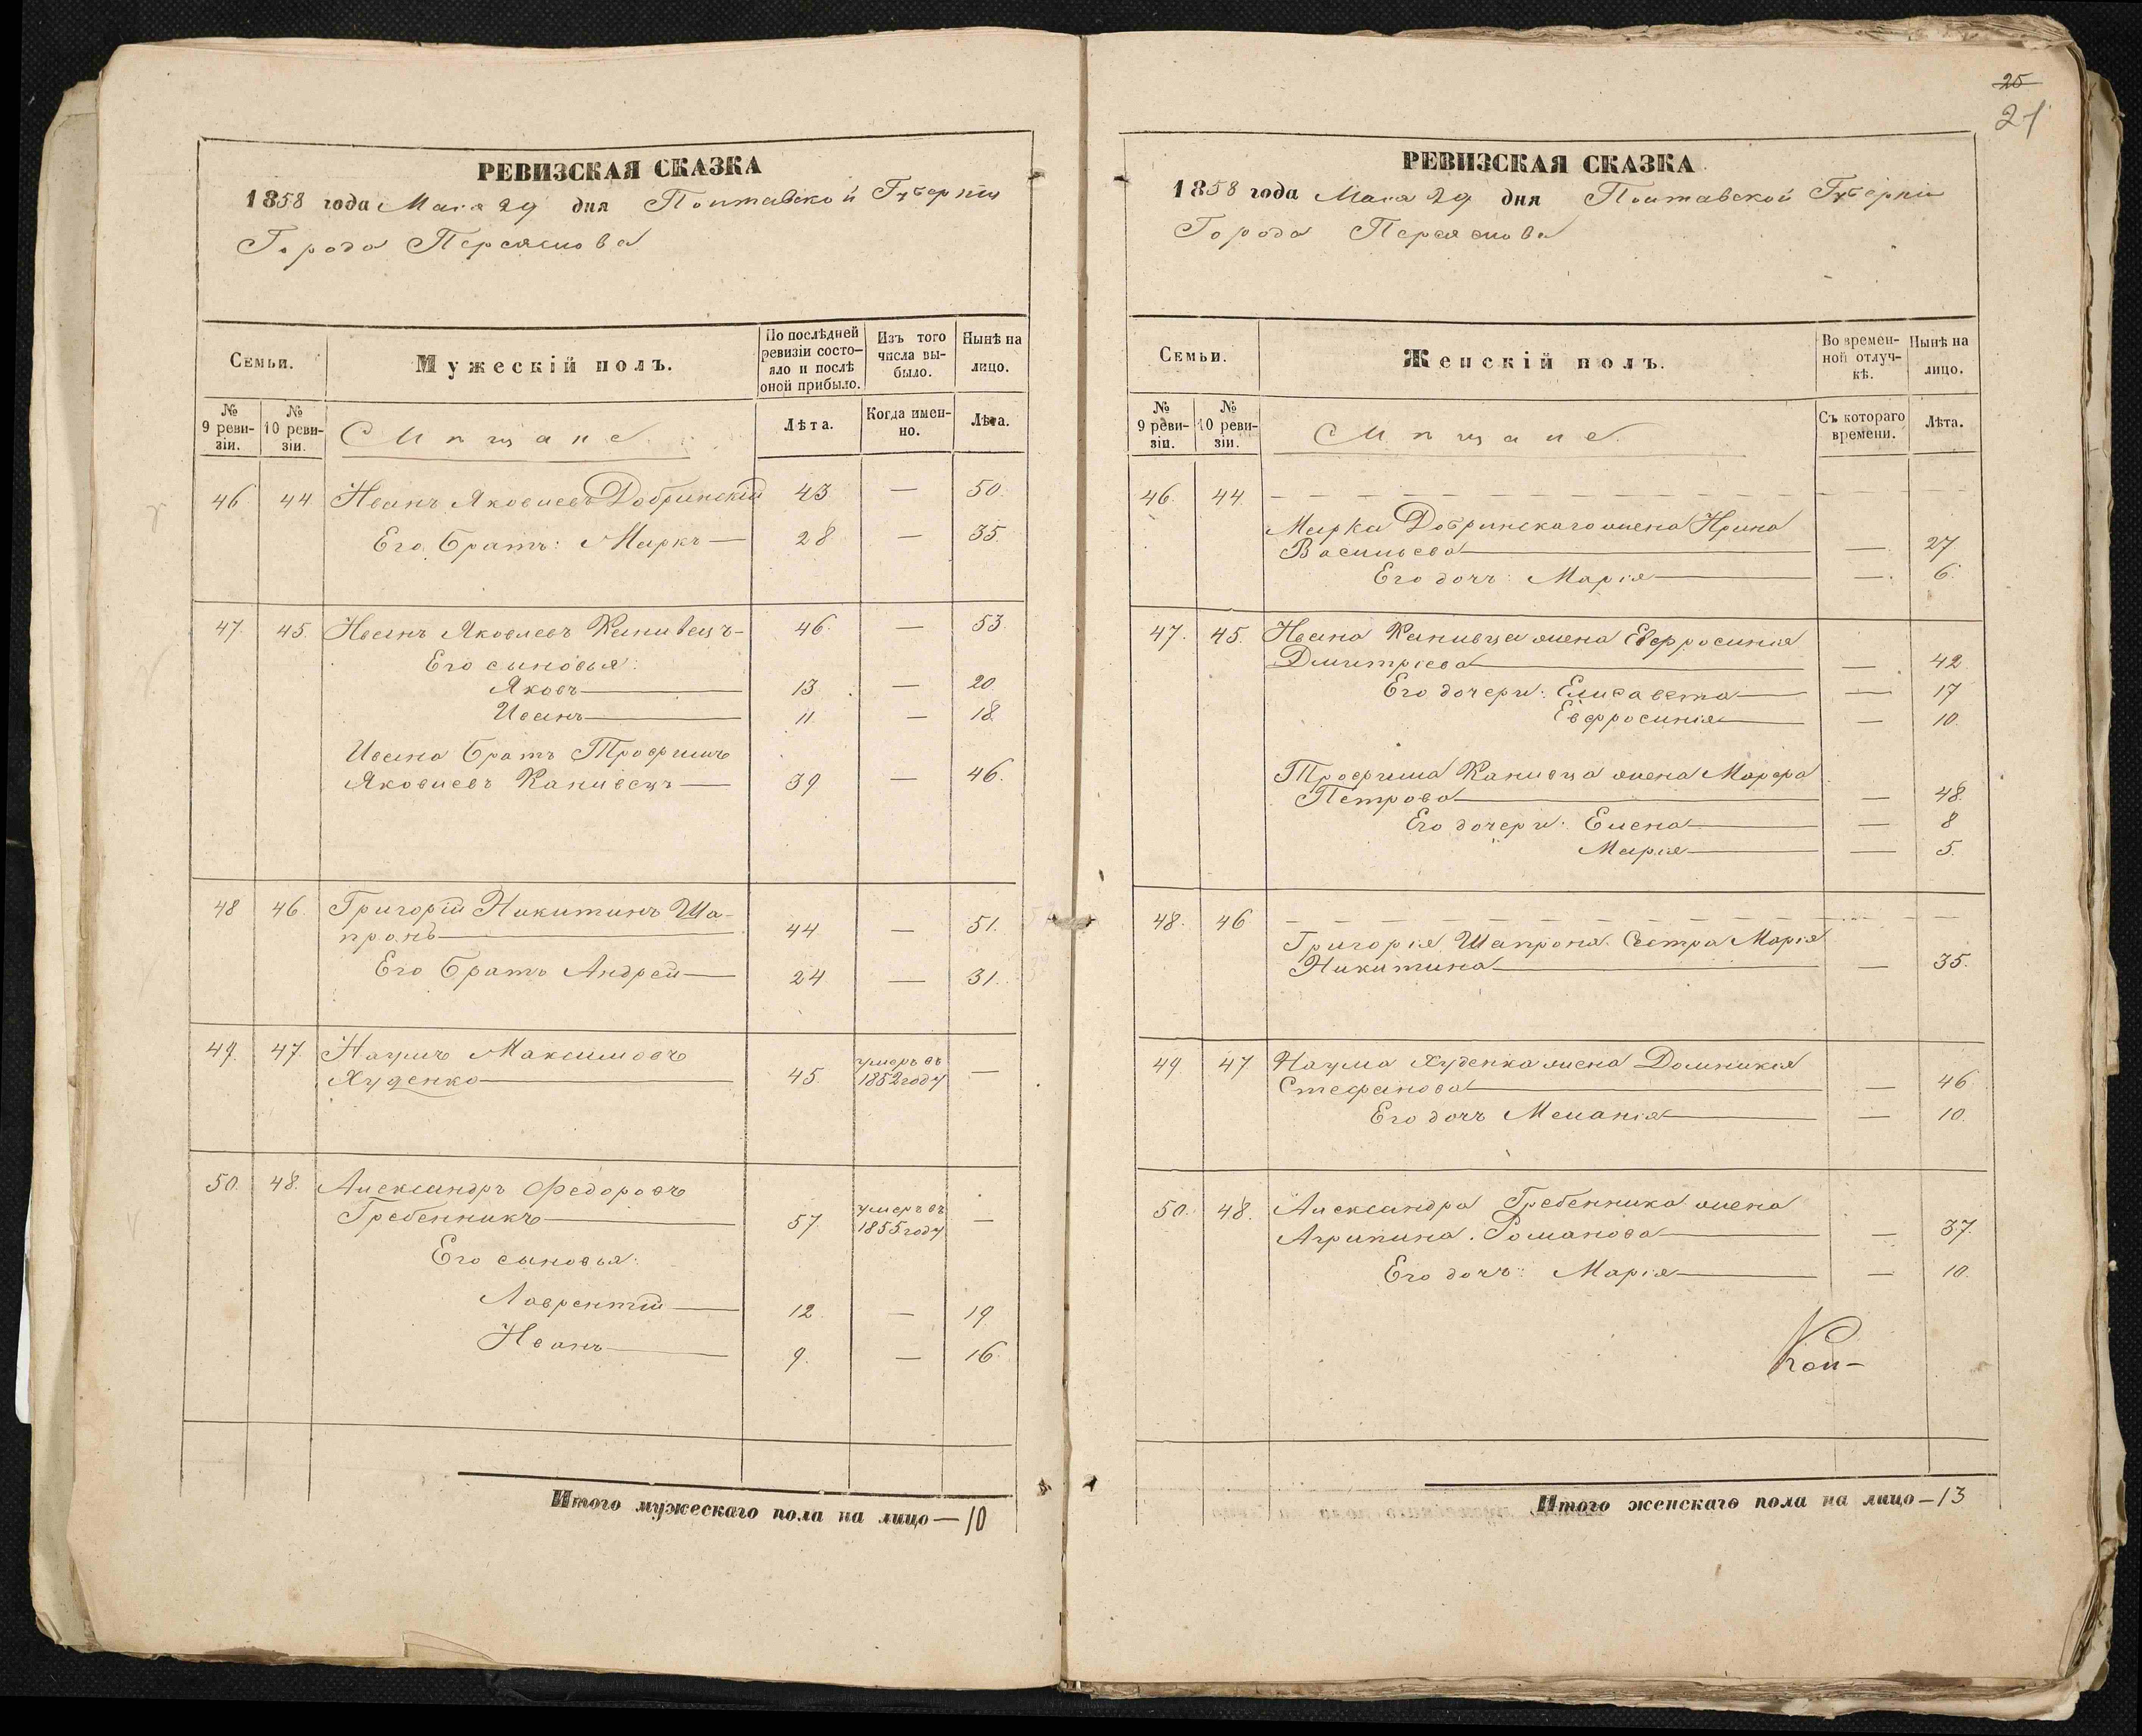 РЕВИЗСКАЯ СКАЗКА
1858 года Мая 29 дня Полтавской Губерніи
Города Переяслова
Семьи.
Мужескій полъ.
По послѣдней ревизіи состояло и послѣ оной прибыло.
Изъ того числа выбыло.
Нынѣ на лицо.
№ 9 ревизіи.
№ 10 ревизіи.
Мѣщане.
Лѣта.
Когда именно.
Лѣта.
46 44 Иванъ Яковлевъ Добринскій 43 — 50.
Его Братъ: Маркъ — 28 — 35.
47. 45. Иванъ Яковлевъ Канивецъ - 46. — 53.
Его сыновья:
Яковъ — 13 — 20
Иванъ — 11 — 18.
Ивана Братъ Трофимъ
Яковлевъ Канивецъ — 39 — 46.
48 46. Григорій Никитинъ Ша-
пронъ — 44 — 51.
Его Братъ Андрей — 24 — 31.
49. 47. Наумъ Максимовъ
Худенко — 45 умеръ въ 1852 году —
50. 48. Александръ Федоровъ
Гребенникъ — 57 умеръ въ 1855 году —
Его сыновья:
Лаврентій — 12 — 19
Иванъ — 9. — 16.
Итого мужескаго пола на лицо — 10
25
21
РЕВИЗСКАЯ СКАЗКА
1858 года Мая 29 дня Полтавской Губерніи
Города Переяслова
Семьи.
Женскій полъ.
Во временной отлучкѣ.
Нынѣ на лицо.
№ 9 ревизіи.
№ 10 ревизіи.
Мѣщане.
Съ котораго времени.
Лѣта.
46. 44. — — —
Марка Добринскаго жена Ирина
Васильева — — 27
Его дочь: Марія — — 6.
47. 45. Ивана Канивца жена Евфросинія
Дмитріева — — 42.
Его дочери: Елисавета — — 17
Евфросинія — — 10.
Трофима Канивца жена Марфа
Петрова — — 48.
Его дочери: Елена — — 8
Марія — — 5.
48. 46 — — —
Григорія Шапрона Сестра Марія
Никитина — — 35.
49. 47 Наума Худенка жена Домникія
Стефанова — — 46
Его дочь Меланія — — 10.
50. 48. Александра Гребенника жена
Агрипина Романова — — 37.
Его дочь: Марія — — 10.
Итого женскаго пола на лицо — 13